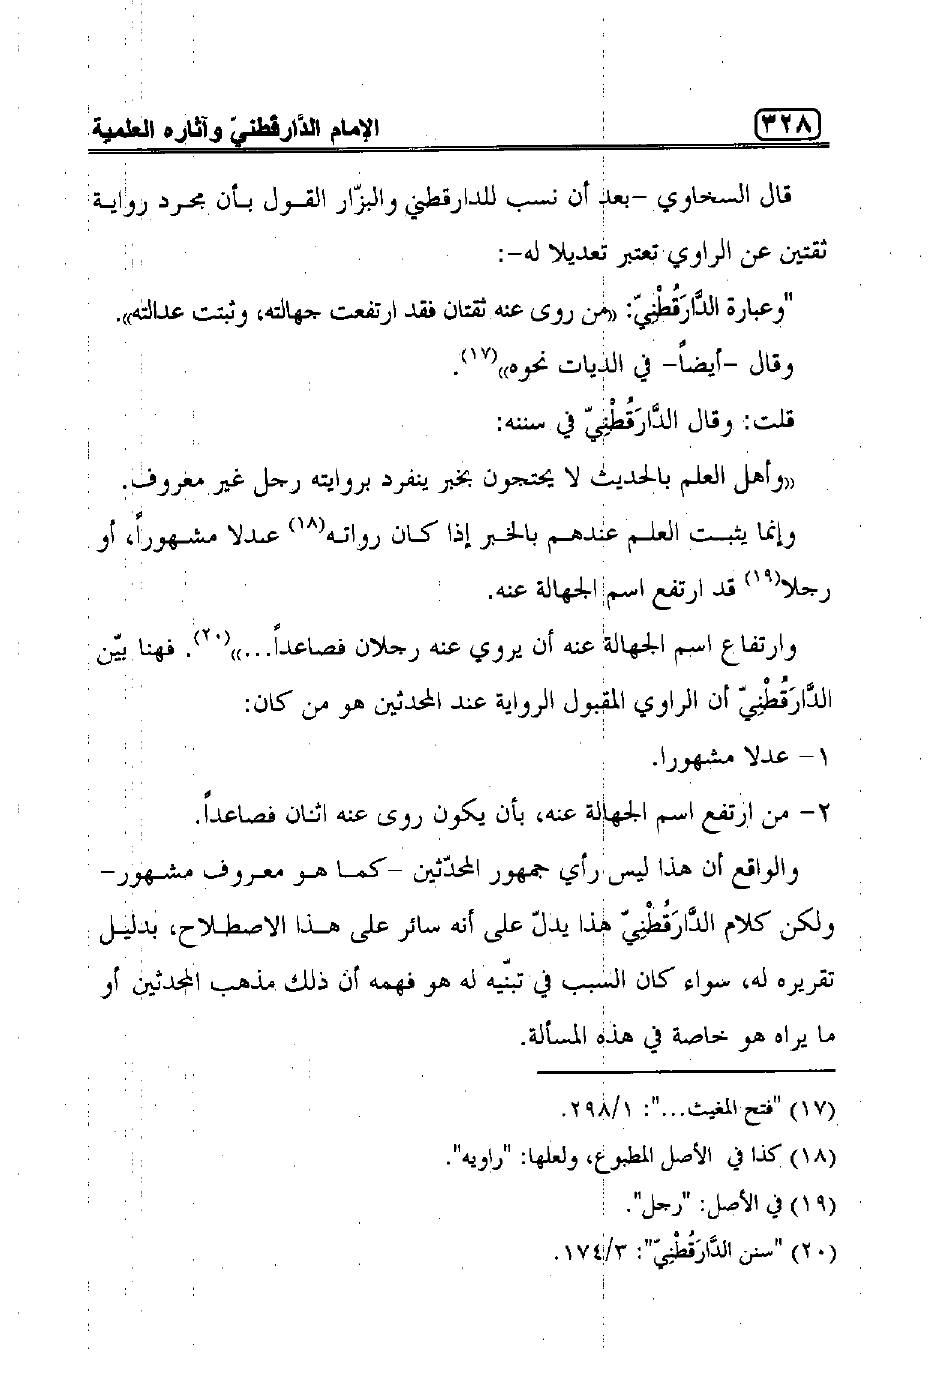 ٣٢٨ الإمام الدَّارقطنيّ وآثاره العلمية
قال السخاوي -بعد أن نسب للدارقطني والبزّار القول بأن مجرد رواية
ثقتين عن الراوي تعتبر تعديلا له-:
"وعبارة الدَّارَقُطْنِيّ: «من روى عنه ثقتان فقد ارتفعت جهالته، وثبتت عدالته».
وقال -أيضاً- في الديات نحوه»(١٧).
قلت: وقال الدَّارَقُطْنِيّ في سننه:
«وأهل العلم بالحديث لا يحتجون بخبر ينفرد بروايته رجل غير معروف.
وإنما يثبت العلم عندهم بالخبر إذا كان رواته(١٨) عدلا مشهوراً، أو
رجلا(١٩) قد ارتفع اسم الجهالة عنه.
وارتفاع اسم الجهالة عنه أن يروي عنه رجلان فصاعداً...»(٢٠). فهنا بيّن
الدَّارَقُطْنِيّ أن الراوي المقبول الرواية عند المحدثين هو من كان:
١- عدلا مشهورا.
٢- من ارتفع اسم الجهالة عنه، بأن يكون روى عنه اثنان فصاعداً.
والواقع أن هذا ليس رأي جمهور المحدّثين -كما هو معروف مشهور-
ولكن كلام الدَّارَقُطْنِيّ هذا يدلّ على أنه سائر على هذا الاصطلاح، بدليل
تقريره له، سواء كان السبب في تبنّيه له هو فهمه أن ذلك مذهب المحدثين أو
ما يراه هو خاصة في هذه المسألة.
(١٧) "فتح المغيث...": ٢٩٨/١.
(١٨) كذا في الأصل المطبوع، ولعلها: "راويه".
(١٩) في الأصل: "رجل".
(٢٠) "سنن الدَّارَقُطْنِيّ": ١٧٤/٣.